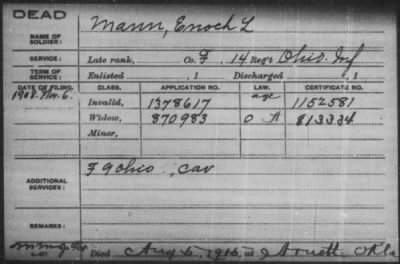 DEAD
NAME OF SOLDIER: Mann, Enoch L
SERVICE: Late rank, Co. F, 14 Reg't Ohio Inf
TERM OF SERVICE: Enlisted , 1 Discharged , 1
DATE OF FILING. CLASS. APPLICATION NO. LAW. CERTIFICATE NO.
1908. Nov. 6. Invalid, 1378617 age 1152581
Widow, 870983 813334
Minor,
ADDITIONAL SERVICES: F 9 Ohio Cav
REMARKS:
Died Aug 5, 1916, at Arnett Okla